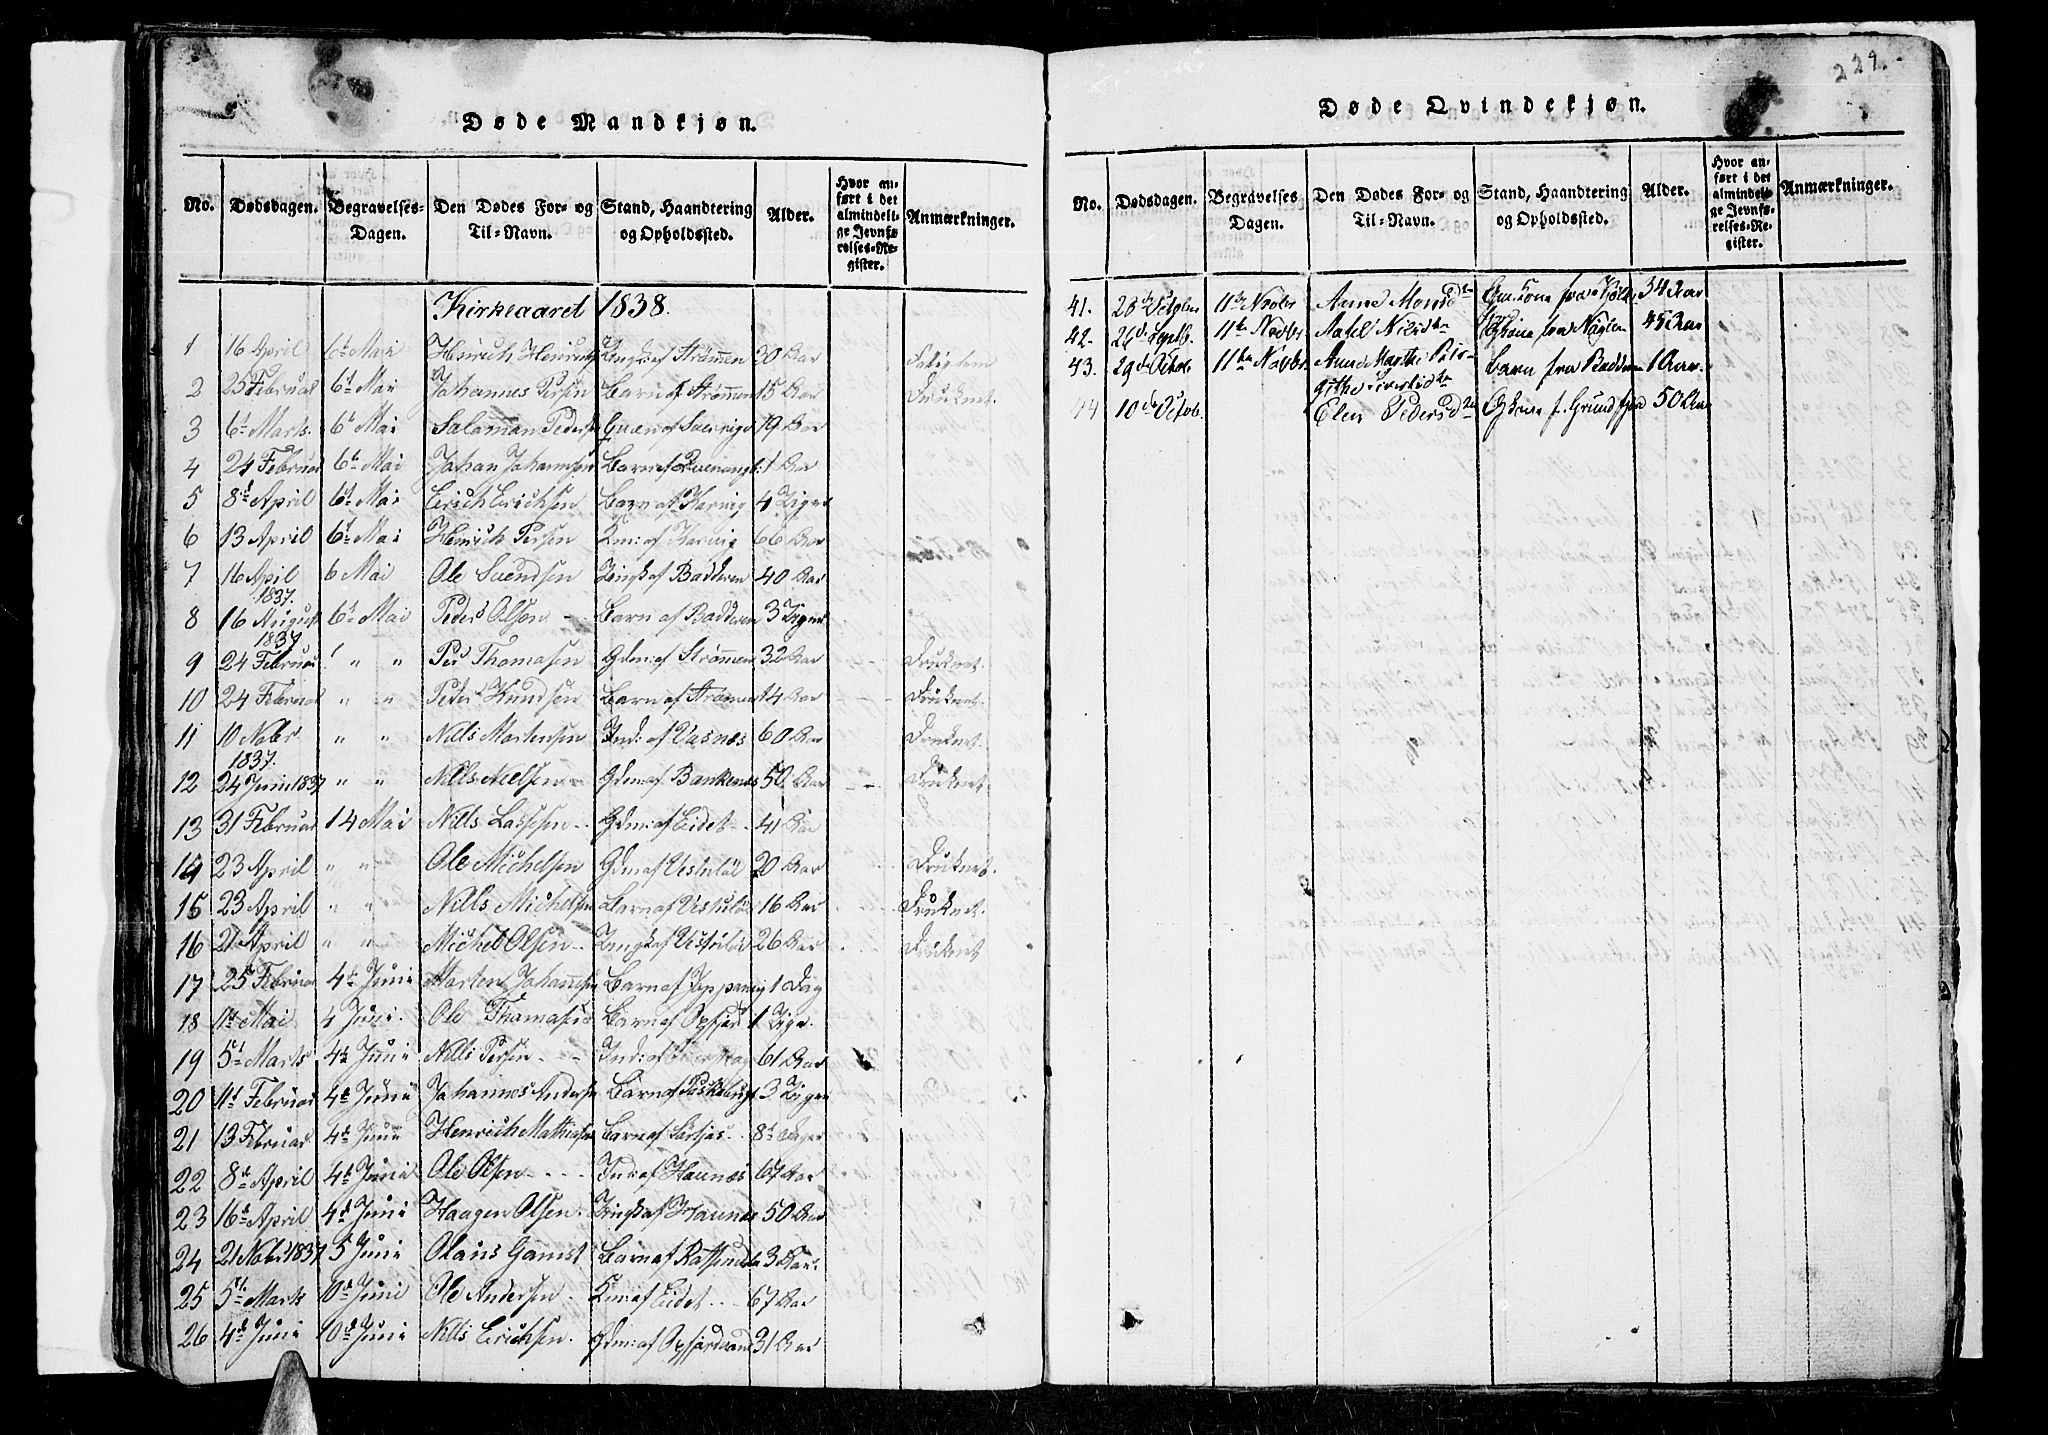 Døde Mandkjøn.
No. Dødsdagen. Begravelses-Dagen. Den Dødes For- og Til-Navn. Stand, Haandtering og Opholdssted. Alder. Hvor anført i det almindelige Jevnførelses-Register. Anmærkninger.
Kirkeaaret 1838.
1 16 April 6t Mai Henrich Henrichs af Strømmen 30 Aar
2 25 Februar 6t Mai Johannes Persen Barn af Strømmen 15 Aar Druknet.
3 6t Marts. 6t Mai Salamon Peders af 19 Aar
4 24 Februar 6t Mai Johan Johannsen Barn af Qvenangb: 1 Aar
5 8d April 6t Mai Erich Erichsen Barn af Karvig 4 Uger
6 13 April 6t Mai Henrich Persen Km: af Karvig 66 Aar
7 16 April 6 Mai Ole Svendsen Ungk: af Badderen 40 Aar
1837.
8 16 August 6t Mai Peder Olsen Barn af Badderen 3 Uger
1837
9 24 Februar " " Per Thomasen Gdm: af Strømmen 32 Aar Druknet.
10 24 Februar " " Peder Knudsen Barn af Strømmen 14 Aar Druknet.
11 10 Nobr. " " Nills Martensen Ind: af Vasnes 60 Aar Druknet.
1837.
12 24 Juni 1837 " " Nills Nielsen Gdm: af Bankenes 50 Aar Druknet.
13 31 Februar 14 Mai Nills Lassesen Gdm: af Eidet 41 Aar
14 23 April " " Ole Michelsen Gdm af 20 Aar Druknet.
15 23 April " " Nills Michelsen Barn af 16 Aar Druknet.
16 21 April " " Michel Olsen Ungk af 26 Aar Druknet
17 25 Februar 4t Juni Marten Johannsen Barn af Joppavig 1 Dag
18 11t Mai 4 Juni. Ole Thomasen Barn af Oxfjord 1 Uge.
19 5t Marts 4t Juni Nills Persen Ind: af 61 Aar
20 11t Februar 4t Juni Johannes Andersen Barn af 3 Uger
21 13 Februar 4t Juni Henrich Mathiasen Barn af 8t Dage
22 8d April 4t Juni Ole Olsen Ind: af Haunes 67 Aar
23 16d April 4t Juni Haagen Olsen. Ungk af Haunes 50 Aar
24 21 Nobr: 1837 5 Juni Olaus Gamst Barn af 3 Aar.
25 5t Marts 10d Juni Ole Andersen Km: af Eidet 67 Aar
26 4d Juni 10d Juni Nills Erichsen. Gdm: af Oxfjordvand 31 Aar
Døde Qvindekjøn.
229.
No. Dødsdagen. Begravelses Dagen. Den Dødes For- og Til-Navn. Stand, Haandtering og Opholdssted. Alder. Hvor anført i det almindelige Jevnførelses-Register. Anmærkninger.
41. 28de Octbr 11te Novbr Anne Monsdtr 34 Aar
42. 26de Septb. 11te Novbr Nilsdtr Kone fra 45 Aar
43. 29de Octob. 11te Novbr. Anne Marthe Barn fra Badderen 1 Aar.
Iversdtr
44 10de Octob. Elen Pedersdtr 50 Aar